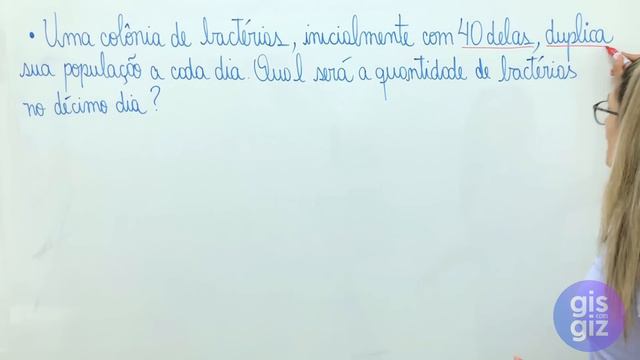 • Uma colônia de bactérias, inicialmente com 40 delas, duplica
sua população a cada dia. Qual será a quantidade de bactérias
no décimo dia?
gis
com
giz